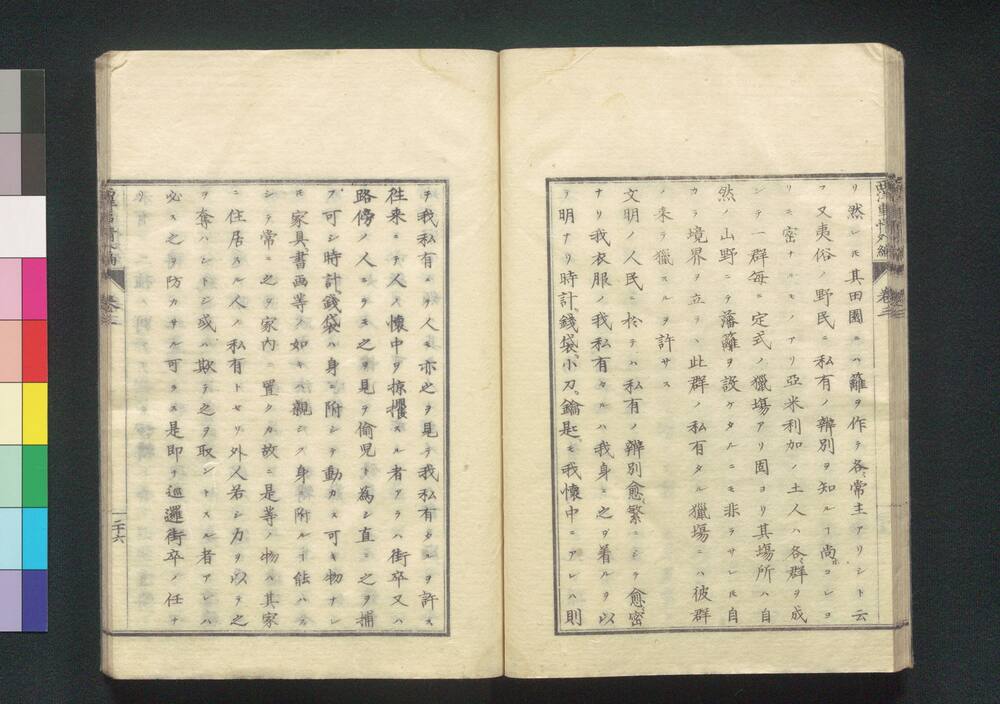 西洋事情外編
卷三
リ然レ𪜈其田園ニハ籬ヲ作テ各〻常主アリシト云
フ又夷俗ノ野民ニ私有ノ辨別ヲ知ルヿ尚コレヨ
リモ密ナルモノアリ亞米利加ノ土人ハ各〻群ヲ成
シテ一群毎ニ定式ノ獵場アリ固ヨリ其場所ハ自
然ノ山野ニテ藩籬ヲ設ケタルニモ非ラサレ𪜈自
カラ境界ヲ立テ此群ノ私有タル獵場ニハ彼群
ノ来テ獵スルヲ許サス
文明ノ人民ニ於テハ私有ノ辨別愈〻繁ニシテ愈〻密
ナリ我衣服ノ我私有タルハ我身ニ之ヲ着ルヲ以
テ明ナリ時計、錢袋、小刀、鑰匙モ我懐中ニアレハ則
チ我私有ニテ人モ亦之ヲ見テ我私有タルヲ許ス
往来ニテ人ノ懐中ヲ掠攫スル者アラハ街卒又ハ
路傍ノ人ニテモ之ヲ見テ偷児ト為シ直ニ之ヲ捕
フ可シ時計、錢袋ハ身ニ附シテ動カス可キ物ナレ
𪜈家具、書画等ノ如キハ親シク身ニ附ルヿ能ハス
シテ常ニ之ヲ家内ニ置クカ故ニ是等ノ物ハ其家
ニ住居スル人ノ私有トセリ外人若シ力ヲ以テ之
ヲ奪ハントシ或ハ欺テ之ヲ取ントスル者アレハ
必ス之ヲ防カサル可ラス是即チ巡邏街卒ノ任ナ
リ
卷三
二十六